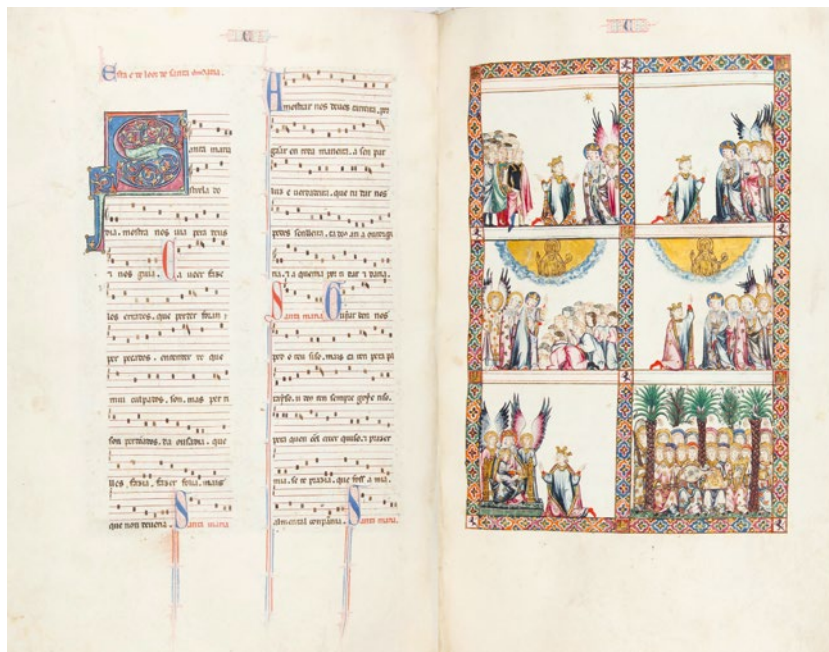 C
Esta e de loor de santa maria.
Santa maria
strela do
dia. mostra nos uia pera deus
⁊ nos guia. Ca ueer faze
los errados. que perder foran
per pecados. entender de que
mui culpados. son. mas per ti
son perdõados. da ousadia. que
lles fazia. fazer folia. mais
que non deueria. Santa maria
Amostrar nos deues carreira. por
gãar en toda maneira. a sen par
luz e uerdadeira. que tu dar nos
podes senlleira. ca deus a ti outorga
ria. ⁊ a querria por ti dar ⁊ daria.
Santa maria. Guiar ben nos
pod o teu siso. mais ca ren pera pa
rayso. u deus ten sempre goye riso.
pora quen en el creer quiso. ⁊ prazer
mia. se te prazia. que foss a mia.
alm en tal compannia. Santa maria.
C